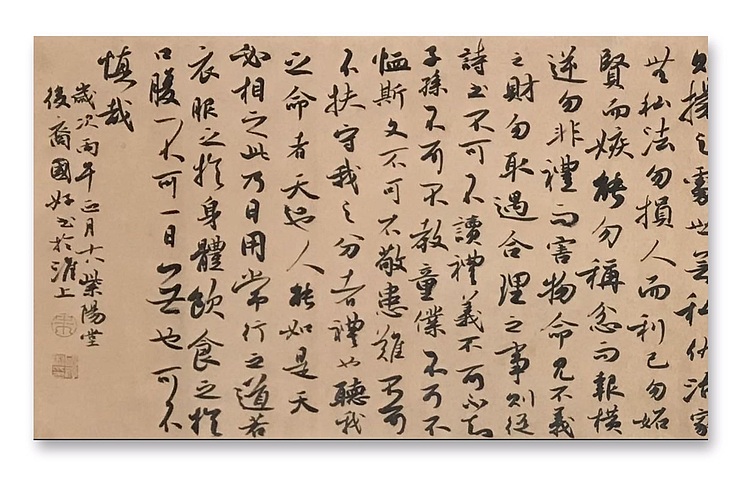 揚之處世無私仇治家
無私法勿損人而利己勿妬
賢而嫉能勿稱忿而報橫
逆勿非禮而害物命見不義
之財勿取遇合理之事則從
詩書不可不讀禮義不可不知
子孫不可不教童僕不可不
恤斯文不可不敬患難不可
不扶守我之分者禮也聽我
之命者天也人能如是天
必相之此乃日用常行之道若
衣服之於身體飲食之於
口腹不可一日無也可不
慎哉
歲次丙午正月十八紫陽堂
後裔國好書於淮上